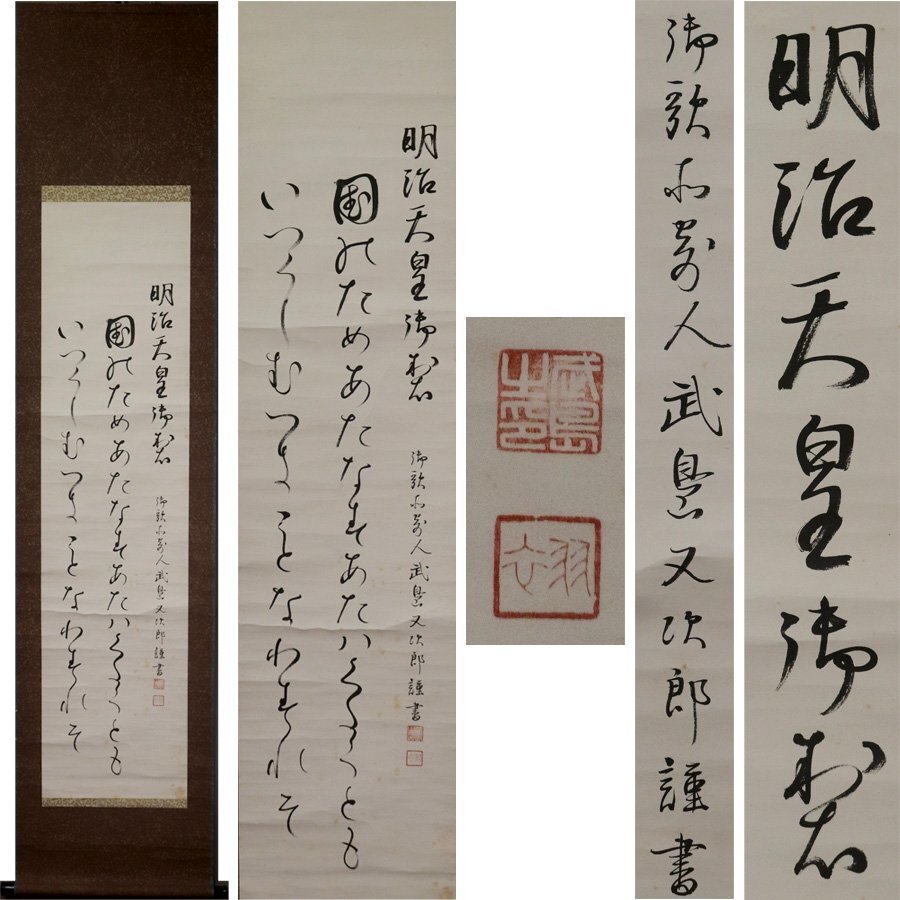 明治天皇御製
御歌所寄人武島又次郎謹書
国のためあたなすあたハくたくとも
いつくしむへきことなわすれそ
明治天皇御製
御歌所寄人武島又次郎謹書
国のためあたなすあたハくたくとも
いつくしむへきことなわすれそ
武島之印
羽衣
御歌所寄人武島又次郎謹書
明治天皇御製